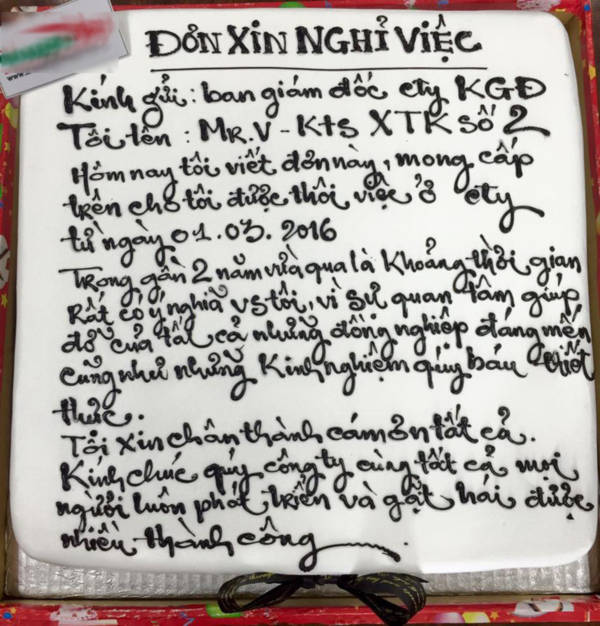 ĐƠN XIN NGHỈ VIỆC
Kính gửi: ban giám đốc cty KGĐ
Tôi tên : MR.V - Kts XTK số 2
Hôm nay tôi viết đơn này, mong cấp
trên cho tôi được thôi việc ở cty
từ ngày 01.03.2016
Trong gần 2 năm vừa qua là khoảng thời gian
Rất có ý nghĩa vs tôi, vì sự quan tâm giúp
đỡ của tất cả những đồng nghiệp đáng mến
cũng như những kinh nghiệm quý báu thiết
thực.
Tôi xin chân thành cám ơn tất cả.
Kính chúc quý công ty cùng tất cả mọi
người luôn phát triển và gặt hái được
nhiều thành công